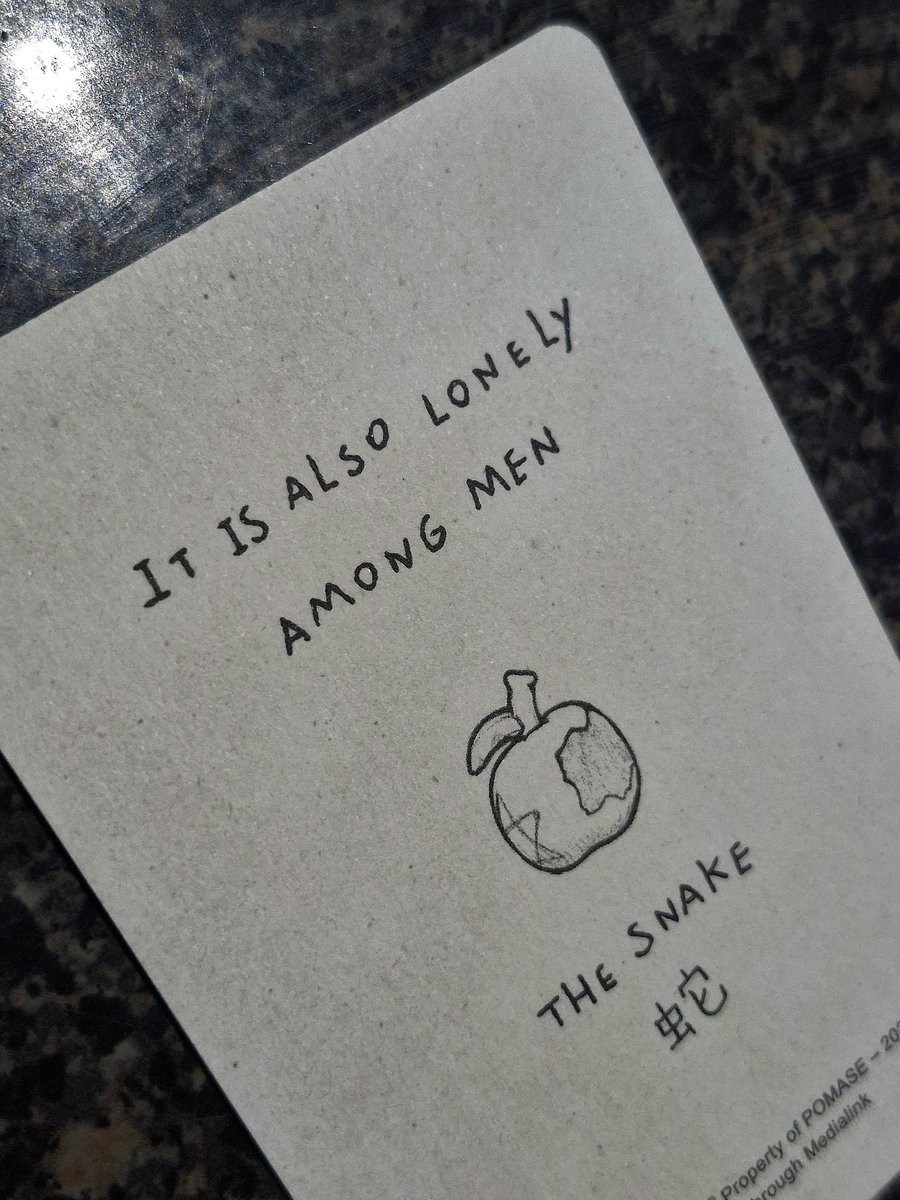 IT IS ALSO LONELY
AMONG MEN
THE SNAKE
蛇
Property of POMASE –
through Medialink